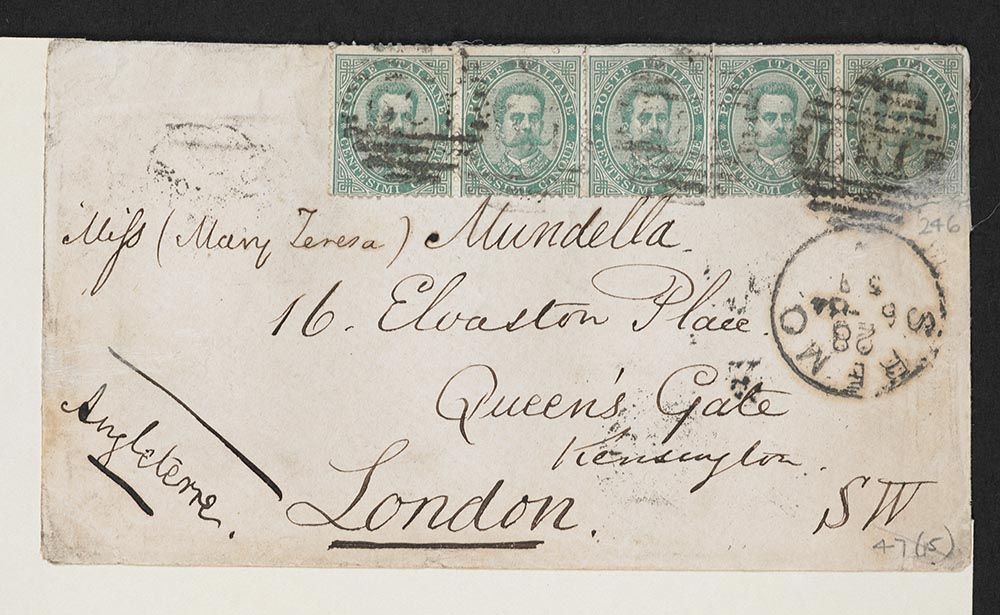 POSTE ITALIANE CENTESIMI CINQUE
POSTE ITALIANE CENTESIMI CINQUE
POSTE ITALIANE CENTESIMI CINQUE
POSTE ITALIANE CENTESIMI CINQUE
POSTE ITALIANE CENTESIMI CINQUE
246
Miss (Mary Teresa) Mundella
16. Elvaston Place.
Queen's Gate
Kensington.
Angleterre.
London.
SW
47(15)